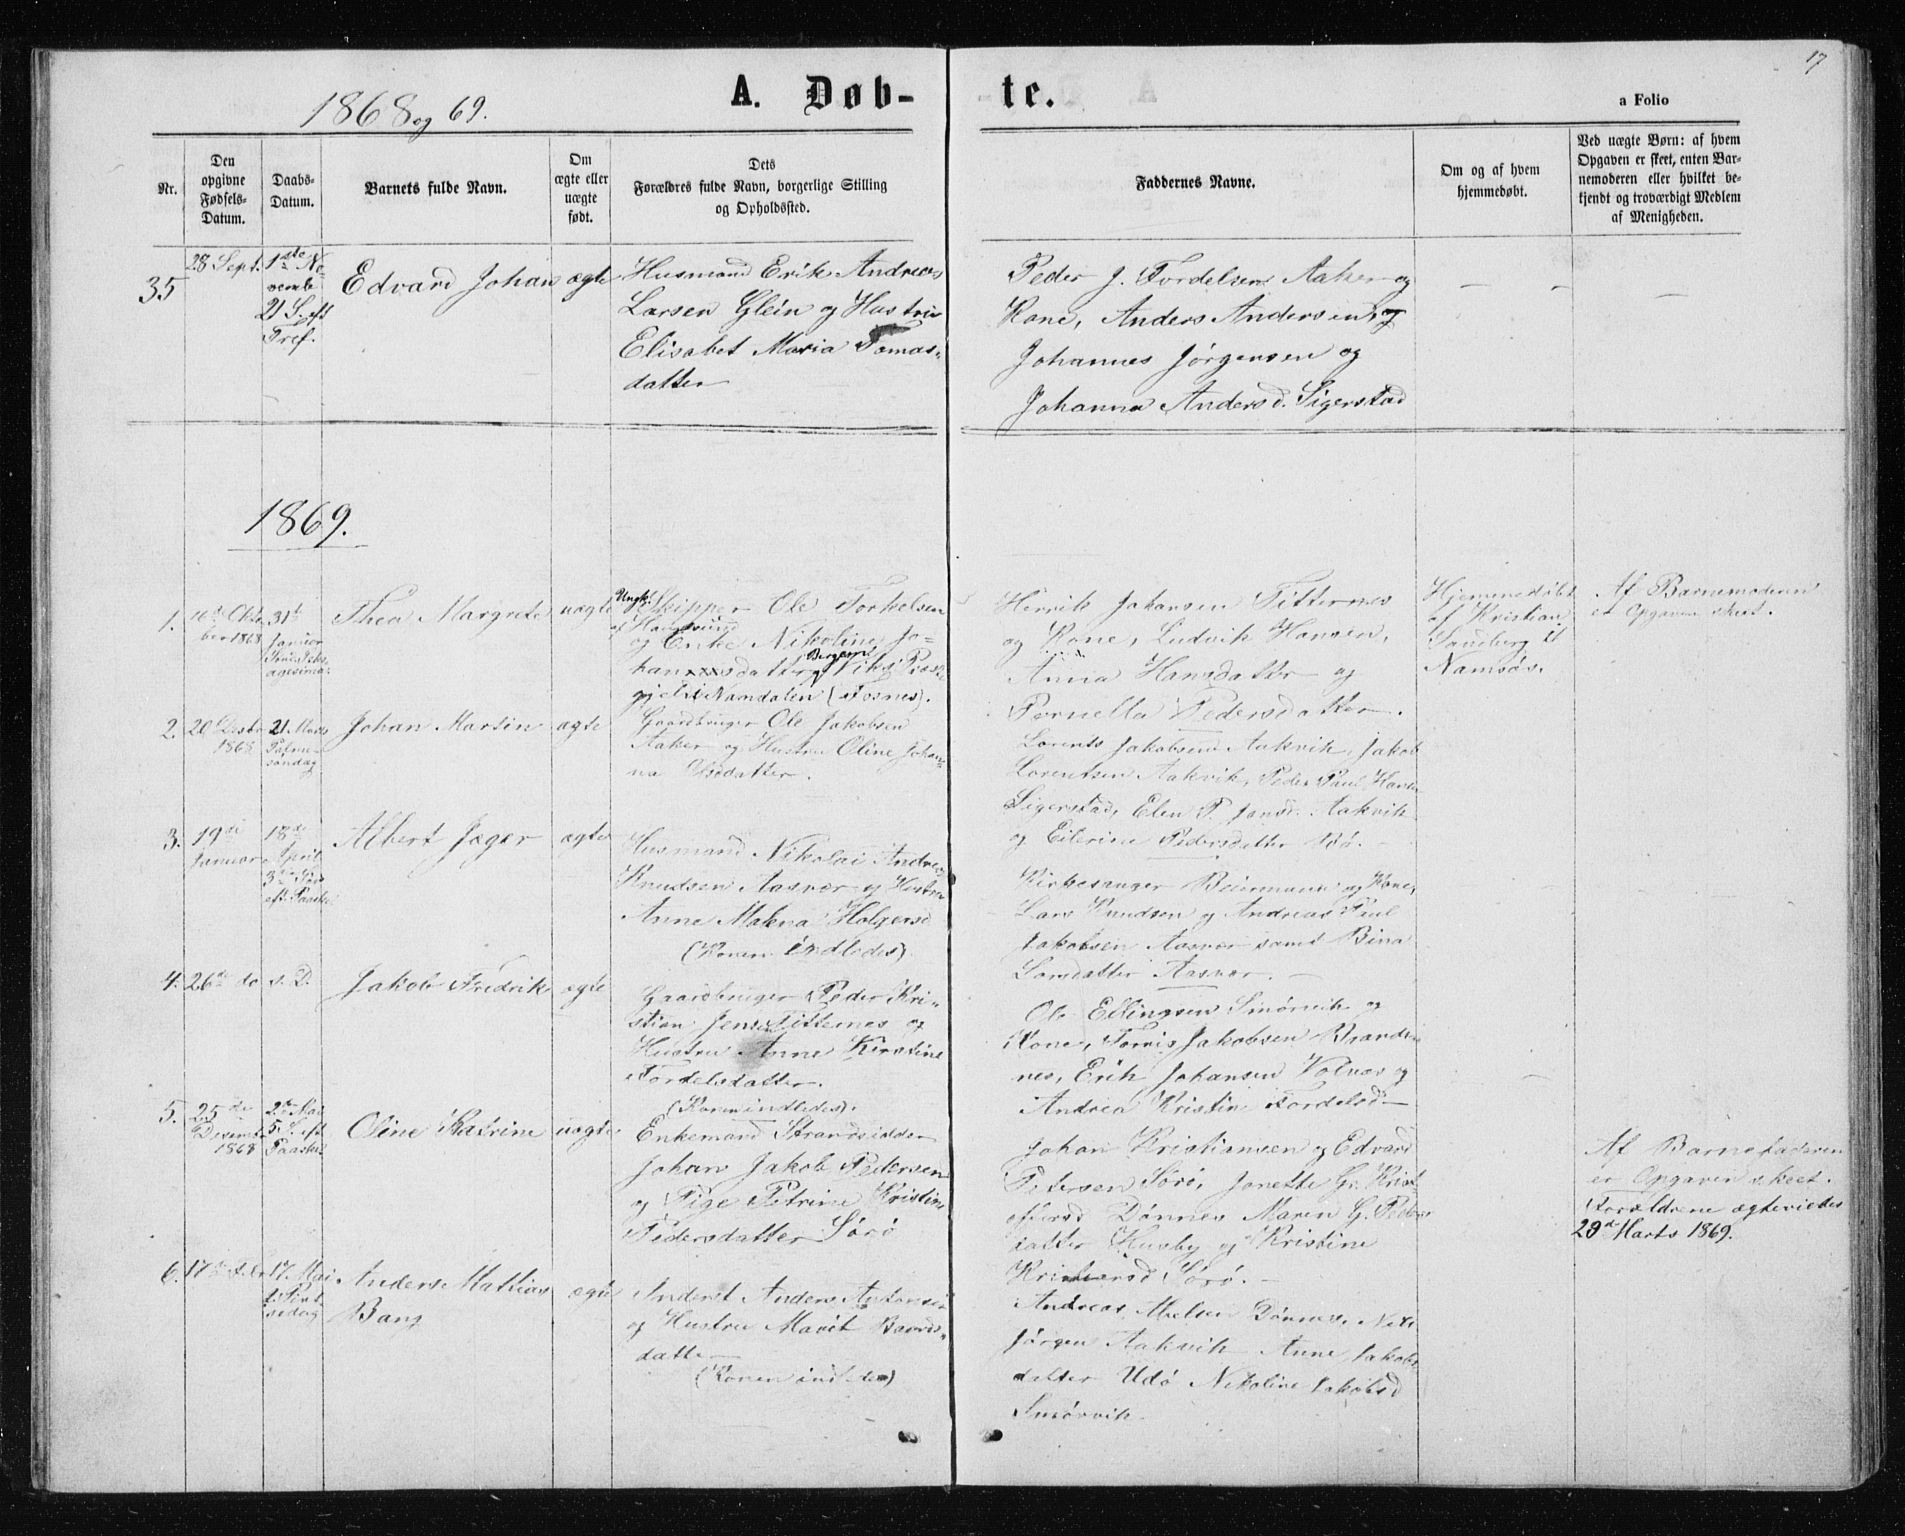 17
1868 og 69.
A. Døb-
te.
a Folio
Nr.
Den
opgivne
Fødsels-
Datum.
Daabs-
Datum.
Barnets fulde Navn.
Om
ægte eller
uægte
født.
Dets
Forældres fulde Navn, borgerlige Stilling
og Opholdssted.
Faddernes Navne.
Om og af hvem
hjemmedøbt.
Ved uægte Børn: af hvem
Opgaven er skeet, enten Bar-
nemoderen eller hvilket be-
kjendt og troværdigt Medlem
af Menigheden.
35
28 Sept.
1ste No-
vembr
21 S. eft
Tref.
Edvard Johan
ægte
Husmand Erik Andreas
Larsen Glein og Hustru
Elisabet Maria Tomas-
datter
Peder J. Tordelsen Aaker og
Kone, Anders Andersen, og
Johannes Jørgensen og
Johanna Andersd. Sigerstad
1869.
1.
Okto
ber 1868
31te
Januar
Thea Margrete
uægte
Ungk. Skipper Ole Torkelsen
og Enke Nikoline Jo-
han datter
gjeld Namdalen (Fosnes).
Henrik Johansen Titternes
og Kone, Ludvik Hansen,
Anna Hansdatter og
Pernella Pedersdatter.
Hjemmedøbt
af Kristian
Sandberg
Namsos.
Af Barnemoderen
er Opgaven skeet.
2.
20 Desbr
1868
21 Marts
Palme-
søndag
Johan Martin
ægte
Gaardbruger Ole Jakobsen
Aaker og Hustru Oline Johan-
na Olsdatter.
Lorents Jakobsen Aakvik, Jakob
Lorentsen Aakvik, Peder Paul Hansen
Sigerstad, Elen P. Jansd. Aakvik
og Eilerine Pedersdatter Bø.
3.
19de
Januar
18de
April
3die S.
eft. Paaske
Albert Jæger
ægte
Husmand Nikolai Andreas
Knudsen Aasvær og Hustru
Anne Makna Holgersd
(Konen indledes).
Kirkesanger Beiermann og Kone,
Lars Knudsen og Andreas Paul
Jakobsen Aasvær samt Bina
Larsdatter Aasvær.
4.
26de do
s. D.
Jakob Fredrik
ægte
Gaardbruger Peder Kri-
stian Jensen Titternes og
Hustru Anne Kirstine
Tordelsdatter.
(Konen indledes).
Ole Ellingsen Smørvik og
Kone, Tomis Jakobsen Brands-
nes, Erik Johansen Volnes og
Andrea Kristin Tordelsd
5.
25de
Desembr
1868
2den Mai
5 S. eft
Paaske
Oline Katrine
uægte
Enkemand Strandsidder
Johan Jakob Pedersen
og Pige Petrine Kristine
Pedersdatter Sørø
Johan Kristiansen og Edvard
Petersen Sørø, Janette Gr. Krist
offersd Dønnes Maren G. Peders
datter Husby og Kristine
Kristiansd Sørø.
Af Barnefaderen
er Opgaven skeet.
Forældrene ægteviedes
28de Marts 1869.
6.
17de
17. Mai
2. Pint-
sedag
Anders Mathias
Bang
ægte
Inderst Anders Antonsen
og Hustru Marit Baards-
datter
(Konen indledes)
Andreas Nielsen Dønnes, Nils
Jørgen Aakvik Anne Jakobs
datter Udø Nikoline Jakobsd
Smørvik.